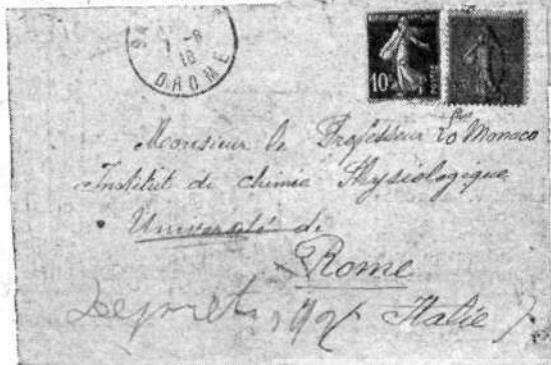 7-8
18
DROME
10c
Monsieur le Professeur Lo Monaco
Institut de chimie Physiologique
Université de
Rome
Italie